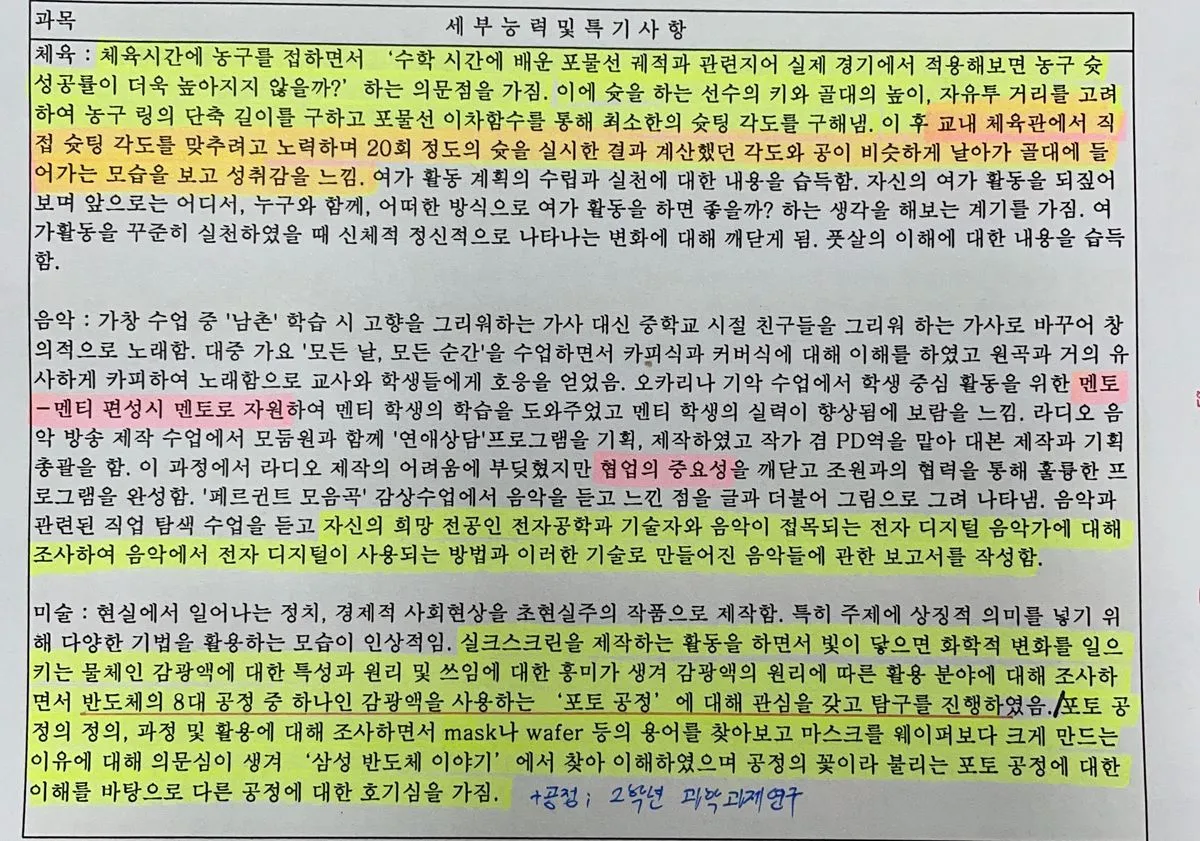 과목
세부능력및특기사항
체육 : 체육시간에 농구를 접하면서 '수학 시간에 배운 포물선 궤적과 관련지어 실제 경기에서 적용해보면 농구 슛
성공률이 더욱 높아지지 않을까?' 하는 의문점을 가짐. 이에 슛을 하는 선수의 키와 골대의 높이, 자유투 거리를 고려
하여 농구 링의 단축 길이를 구하고 포물선 이차함수를 통해 최소한의 슛팅 각도를 구해냄. 이 후 교내 체육관에서 직
접 슛팅 각도를 맞추려고 노력하며 20회 정도의 슛을 실시한 결과 계산했던 각도와 공이 비슷하게 날아가 골대에 들
어가는 모습을 보고 성취감을 느낌. 여가 활동 계획의 수립과 실천에 대한 내용을 습득함. 자신의 여가 활동을 되짚어
보며 앞으로는 어디서, 누구와 함께, 어떠한 방식으로 여가 활동을 하면 좋을까? 하는 생각을 해보는 계기를 가짐. 여
가활동을 꾸준히 실천하였을 때 신체적 정신적으로 나타나는 변화에 대해 깨닫게 됨. 풋살의 이해에 대한 내용을 습득
함.
음악 : 가창 수업 중 '남촌' 학습 시 고향을 그리워하는 가사 대신 중학교 시절 친구들을 그리워 하는 가사로 바꾸어 창
의적으로 노래함. 대중 가요 '모든 날, 모든 순간'을 수업하면서 카피식과 커버식에 대해 이해를 하였고 원곡과 거의 유
사하게 카피하여 노래함으로 교사와 학생들에게 호응을 얻었음. 오카리나 기악 수업에서 학생 중심 활동을 위한 멘토
-멘티 편성시 멘토로 자원하여 멘티 학생의 학습을 도와주었고 멘티 학생의 실력이 향상됨에 보람을 느낌. 라디오 음
악 방송 제작 수업에서 모둠원과 함께 '연애상담'프로그램을 기획, 제작하였고 작가 겸 PD역을 맡아 대본 제작과 기획
총괄을 함. 이 과정에서 라디오 제작의 어려움에 부딪혔지만 협업의 중요성을 깨닫고 조원과의 협력을 통해 훌륭한 프
로그램을 완성함. '페르귄트 모음곡' 감상수업에서 음악을 듣고 느낀 점을 글과 더불어 그림으로 그려 나타냄. 음악과
관련된 직업 탐색 수업을 듣고 자신의 희망 전공인 전자공학과 기술자와 음악이 접목되는 전자 디지털 음악가에 대해
조사하여 음악에서 전자 디지털이 사용되는 방법과 이러한 기술로 만들어진 음악들에 관한 보고서를 작성함.
미술 : 현실에서 일어나는 정치, 경제적 사회현상을 초현실주의 작품으로 제작함. 특히 주제에 상징적 의미를 넣기 위
해 다양한 기법을 활용하는 모습이 인상적임. 실크스크린을 제작하는 활동을 하면서 빛이 닿으면 화학적 변화를 일으
키는 물체인 감광액에 대한 특성과 원리 및 쓰임에 대한 흥미가 생겨 감광액의 원리에 따른 활용 분야에 대해 조사하
면서 반도체의 8대 공정 중 하나인 감광액을 사용하는 '포토 공정' 에 대해 관심을 갖고 탐구를 진행하였음. 포토 공
정의 정의, 과정 및 활용에 대해 조사하면서 mask나 wafer 등의 용어를 찾아보고 마스크를 웨이퍼보다 크게 만드는
이유에 대해 의문심이 생겨 '삼성 반도체 이야기' 에서 찾아 이해하였으며 공정의 꽃이라 불리는 포토 공정에 대한
이해를 바탕으로 다른 공정에 대한 호기심을 가짐. +공정; 2학년 과학과제연구